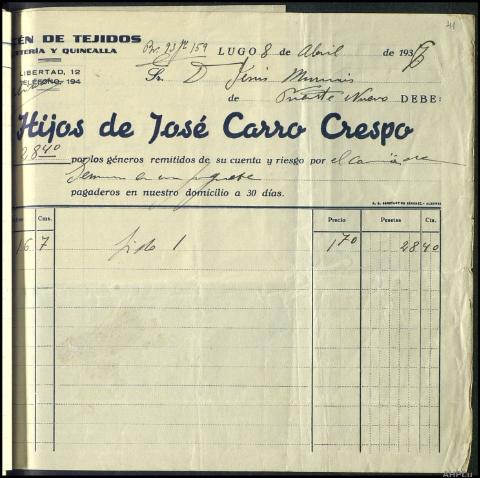 41
CÉN DE TEJIDOS
TERÍA Y QUINCALLA
LIBERTAD, 12
TELÉFONO, 194
LUGO 8 de Abril de 1936
Sr. D. Jesús
de Puente Nuevo DEBE:
Hijos de José Carro Crespo
2840 por los géneros remitidos de su cuenta y riesgo por el
en un paquete
pagaderos en nuestro domicilio a 30 días.
Cms. Precio Pesetas Cts.
16 7 1 1 70 28 40